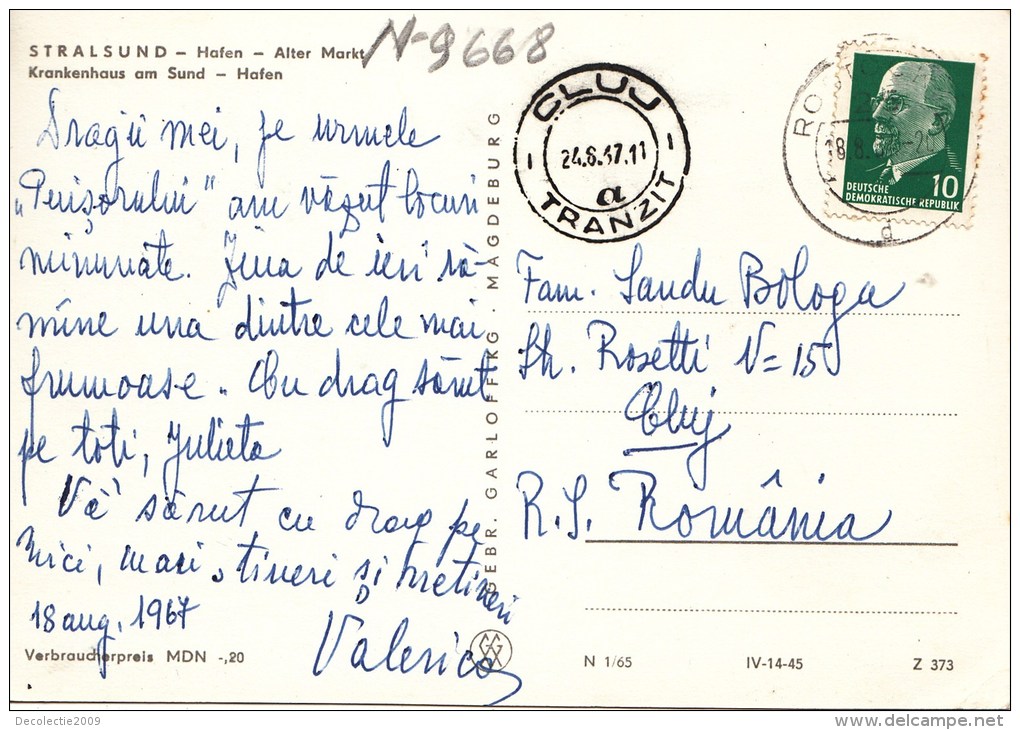 STRALSUND – Hafen – Alter Markt
Krankenhaus am Sund – Hafen
N-9668
CLUJ
24.8.67.11
α
TRANZIT
18.8.
d
10
DEUTSCHE
DEMOKRATISCHE REPUBLIK
Dragii mei, pe urmele
„Penişorului” am văzut locuri
minunate. Ziua de ieri ră-
mîne una dintre cele mai
frumoase. Cu drag sărut
pe toti, Julieta
Vă sărut cu drag pe
mici, mari, tineri şi netineri
18 aug. 1967
Valerica
GEBR. GARLOFF KG · MAGDEBURG
Fam. Sandu Bologa
Str. Rosetti N= 15
Cluj
R.S. România
Verbraucherpreis MDN -,20
N 1/65 IV-14-45 Z 373
Decolectie2009
www.delcampe.net